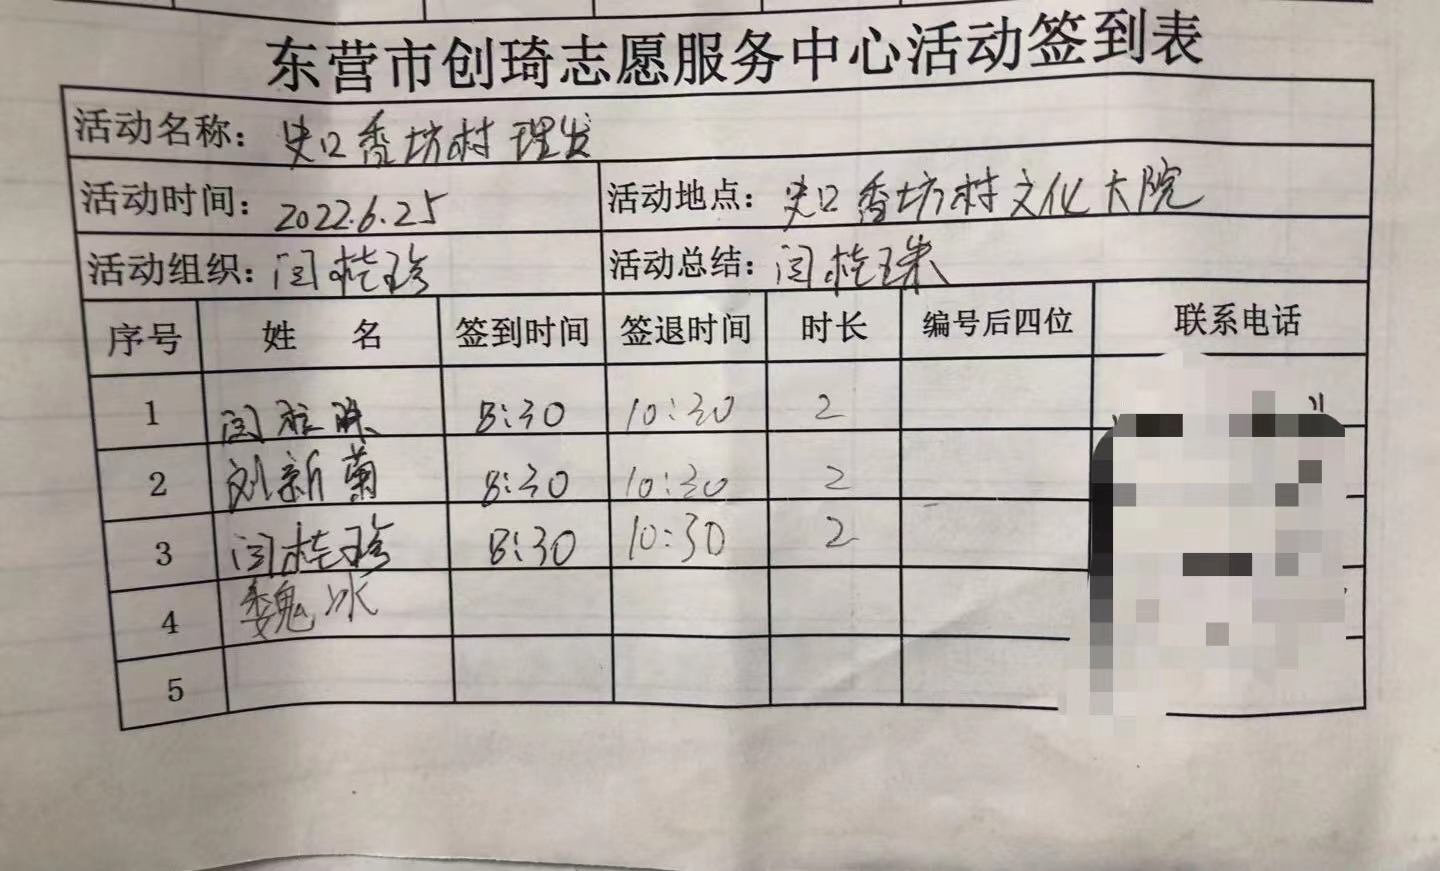 东营市创琦志愿服务中心活动签到表
活动名称: 史口香坊村理发
活动时间: 2022.6.25 活动地点: 史口香坊村文化大院
活动组织: 闫桂珍 活动总结: 闫桂珠
序号 姓 名 签到时间 签退时间 时长 编号后四位 联系电话
1 闫桂珠 8:30 10:30 2
2 刘新菊 8:30 10:30 2
3 闫桂珍 8:30 10:30 2
4 魏冰
5